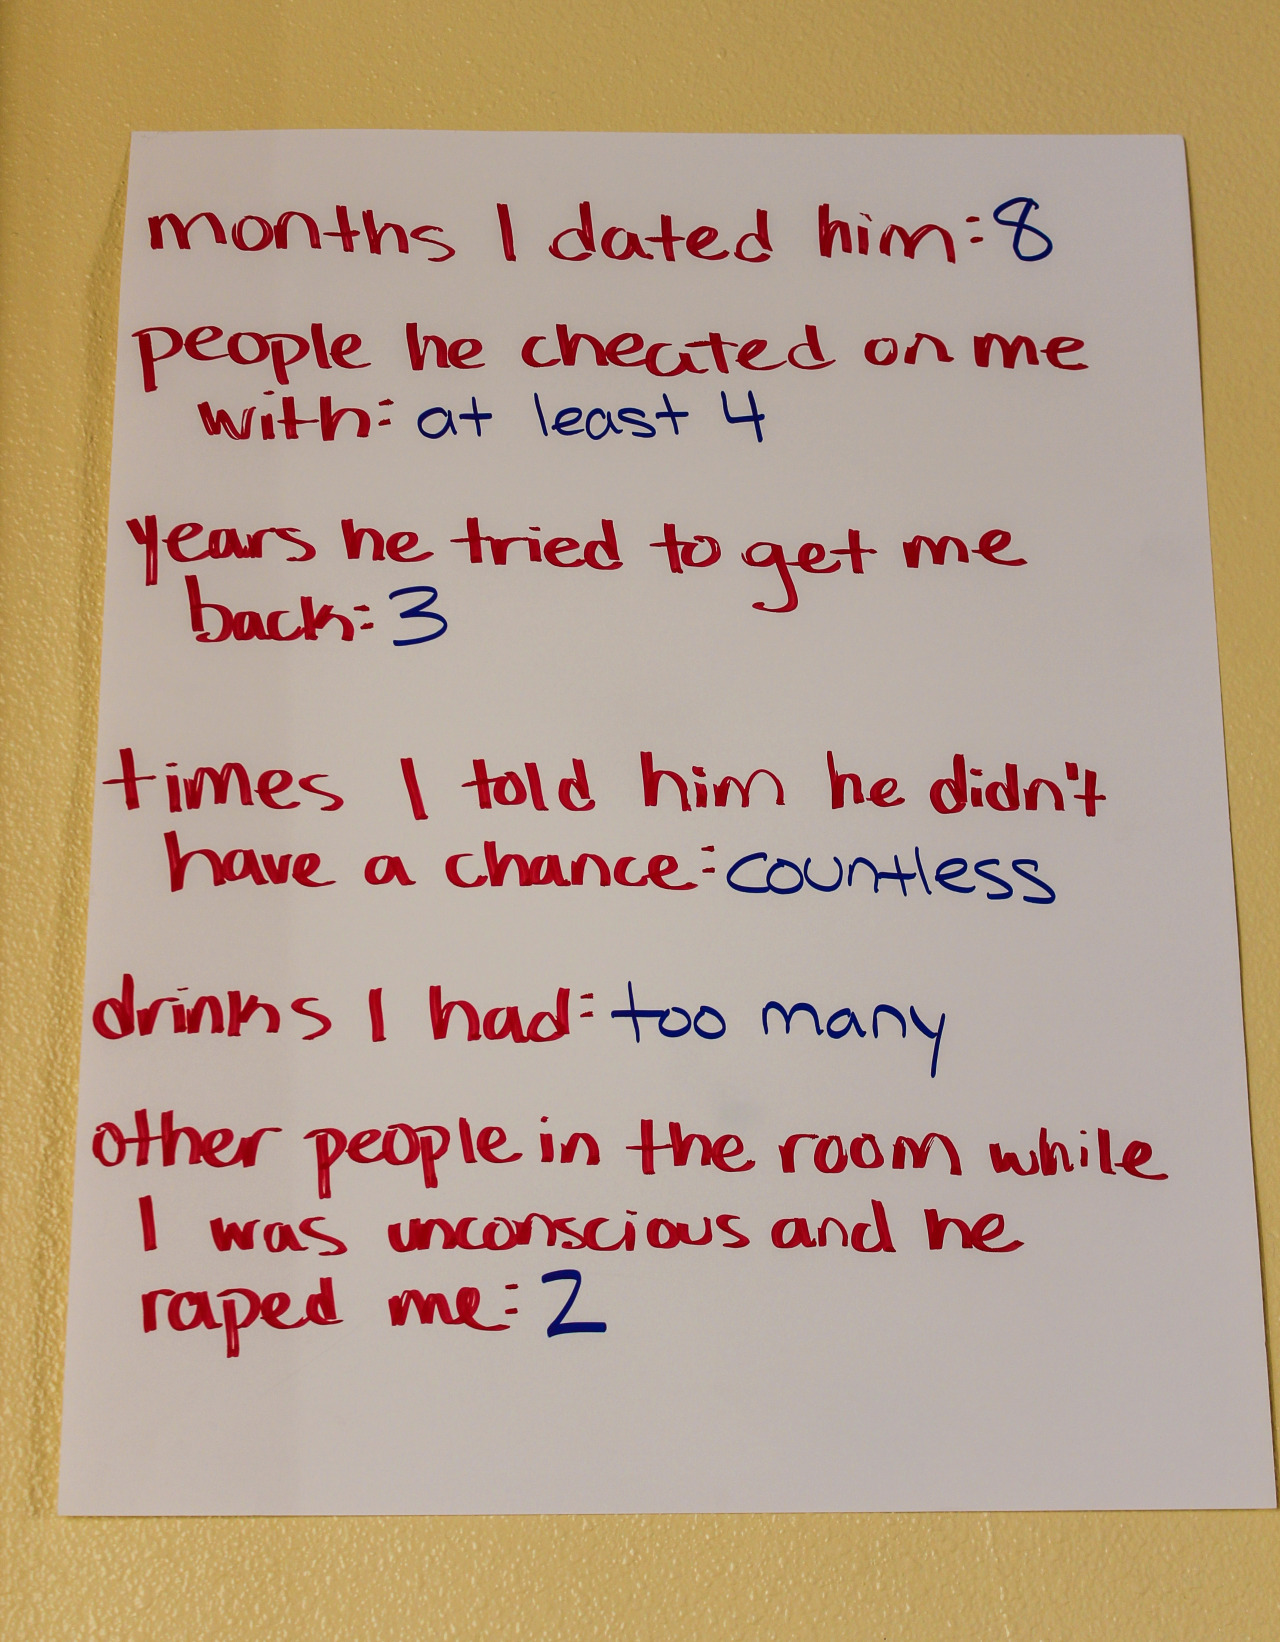 months I dated him: 8
people he cheated on me
with: at least 4
years he tried to get me
back: 3
times I told him he didn't
have a chance: countless
drinks I had: too many
other people in the room while
I was unconscious and he
raped me: 2